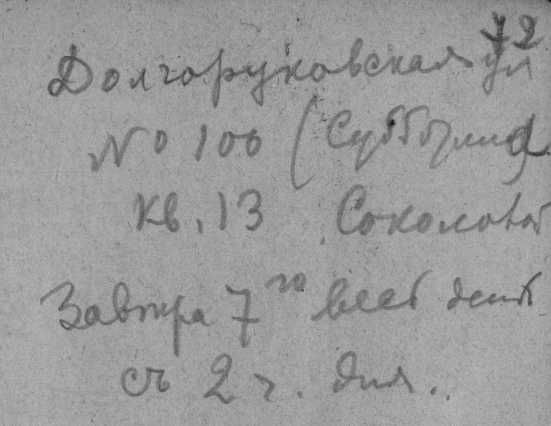 72
Долгоруковская ул
No 100 (Субботина)
кв. 13 Соколовой
Завтра 7го весь день
съ 2 ч. дня.